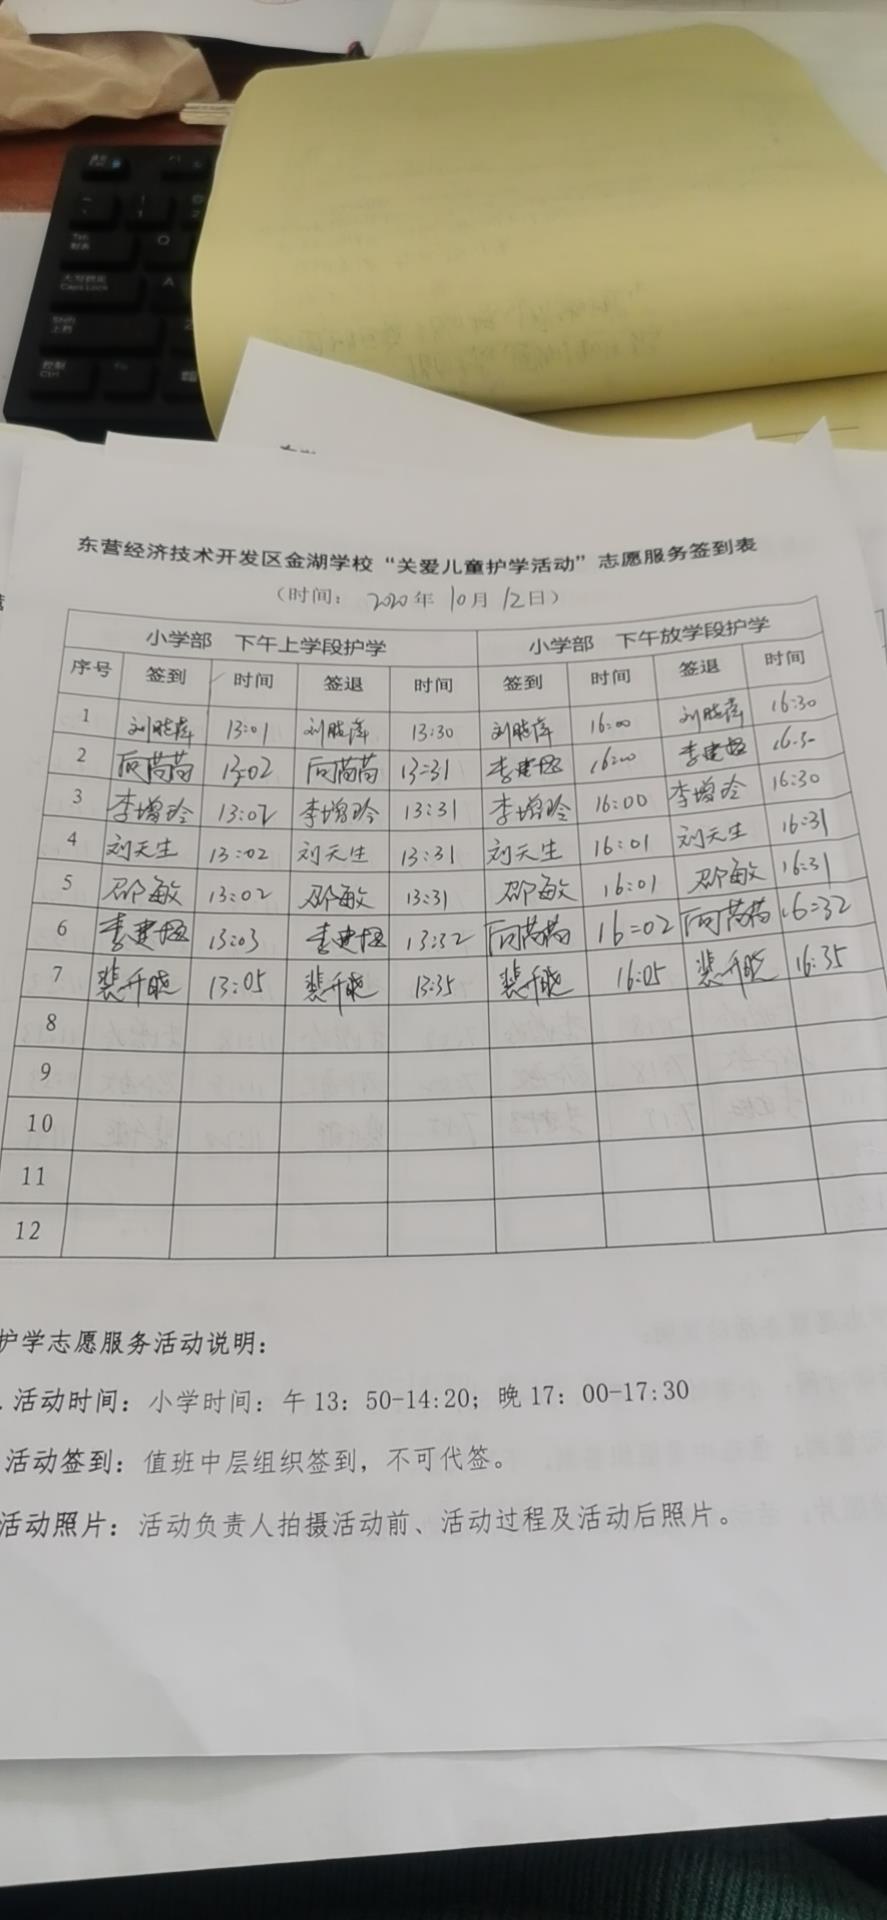 东营经济技术开发区金湖学校“关爱儿童护学活动”志愿服务签到表
（时间： 2020年 10月 12日）
小学部 下午上学段护学 小学部 下午放学段护学
序号 签到 时间 签退 时间 签到 时间 签退 时间
1 刘晓萍 13:01 刘晓萍 13:30 刘晓萍 16:00 刘晓萍 16:30
2 13:02 13:31 16:00 16:30
3 李增玲 13:02 李增玲 13:31 李增玲 16:00 李增玲 16:30
4 刘天生 13:02 刘天生 13:31 刘天生 16:01 刘天生 16:31
5 邵敏 13:02 邵敏 13:31 邵敏 16:01 邵敏 16:31
6 13:03 13:32 16:02 16:32
7 裴升晓 13:05 裴升晓 13:35 裴升晓 16:05 裴升晓 16:35
8
9
10
11
12
护学志愿服务活动说明：
.活动时间：小学时间：午13：50-14:20；晚17：00-17:30
活动签到：值班中层组织签到，不可代签。
活动照片：活动负责人拍摄活动前、活动过程及活动后照片。
Caps Lock
Ctrl